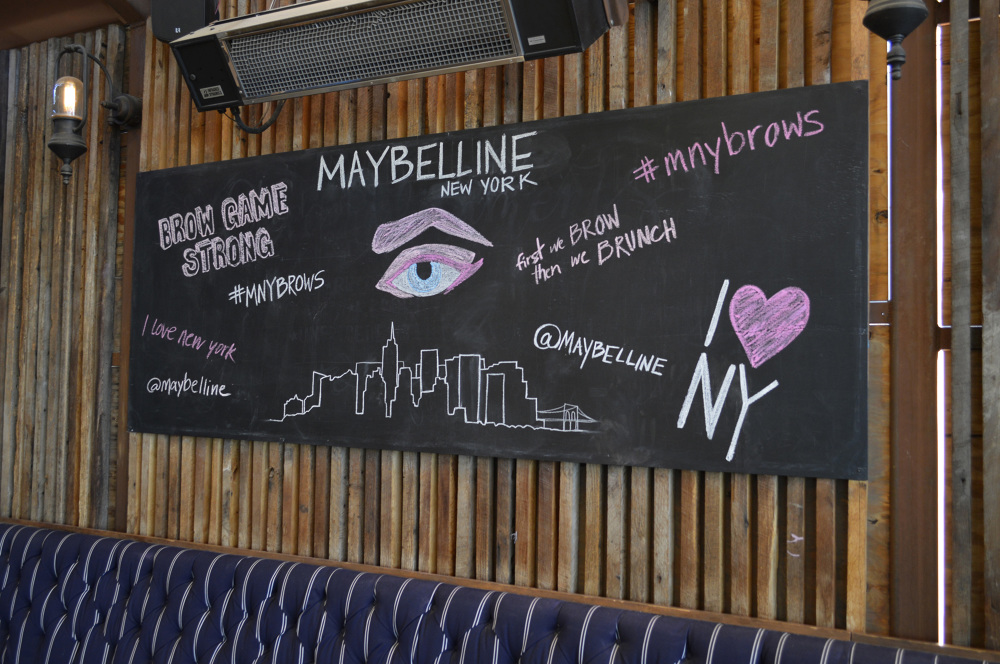 MAYBELLINE
NEW YORK
#mnybrows
BROW GAME
STRONG
first we BROW
then we BRUNCH
#MNYBROWS
I love new york
@maybelline
@MAYBELLINE
I
NY